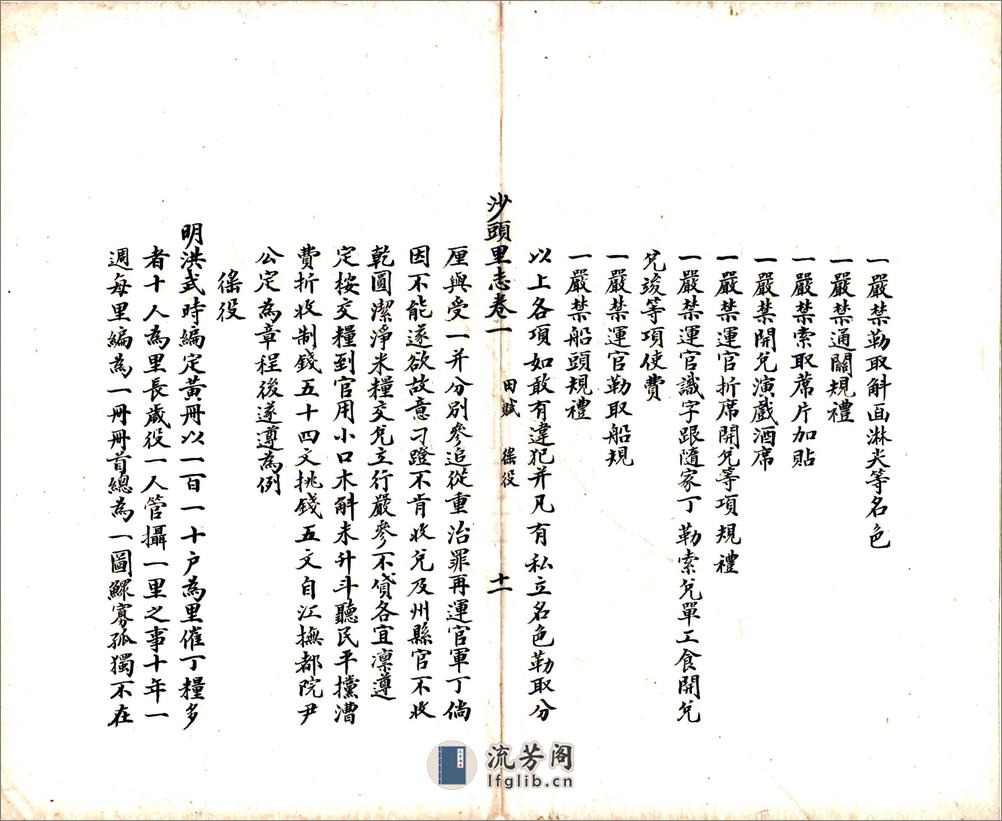 一嚴禁勒取斛面淋尖等名色
一嚴禁通關規禮
一嚴禁索取蓆片加貼
一嚴禁開兌演戲酒席
一嚴禁運官折席開兌等項規禮
一嚴禁運官識字跟隨家丁勒索兌單工食開兌
兌竣等項使費
一嚴禁運官勒取船規
一嚴禁船頭規禮
以上各項如敢有違犯并凡有私立名色勒取分
沙頭里志卷一 田賦 徭役 十一
厘與受一并分别參追從重治罪再運官軍丁倘
因不能遂欲故意刁蹬不肯收兌及州縣官不收
乾圓潔淨米糧交兌立行嚴參不貸各宜凛遵
定桉交糧到官用小口木斛未升斗聽民平攩漕
費折收制錢五十四文挑錢五文自江撫都院尹
公定為章程後遂遵為例
徭役
明洪武時編定黃冊以一百一十户為里催丁糧多
者十人為里長歲役一人管攝一里之事十年一
週每里編為一冊冊首總為一圖鰥寡孤獨不在
流芳阁
lfglib.cn